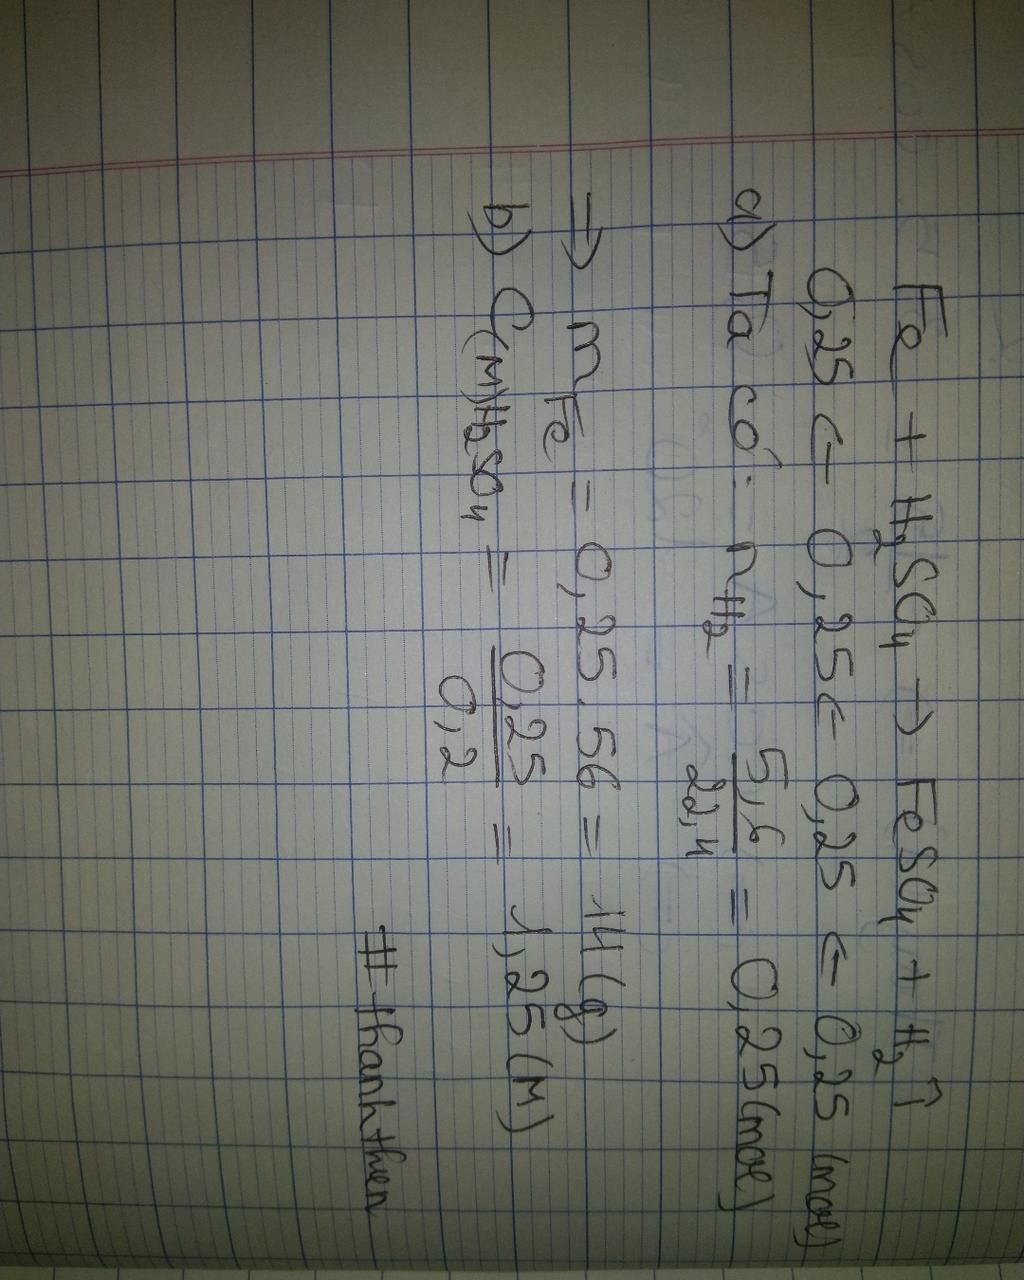 Fe + H₂SO₄ → FeSO₄ + H₂ ↑
0,25 ← 0,25 ← 0,25 ← 0,25 (mol)
a) Ta có: nH₂ = 5,6/22,4 = 0,25 (mol)
⇒ mFe = 0,25 . 56 = 14 (g)
b) C(M)H₂SO₄ = 0,25/0,2 = 1,25 (M)
#thanhthen